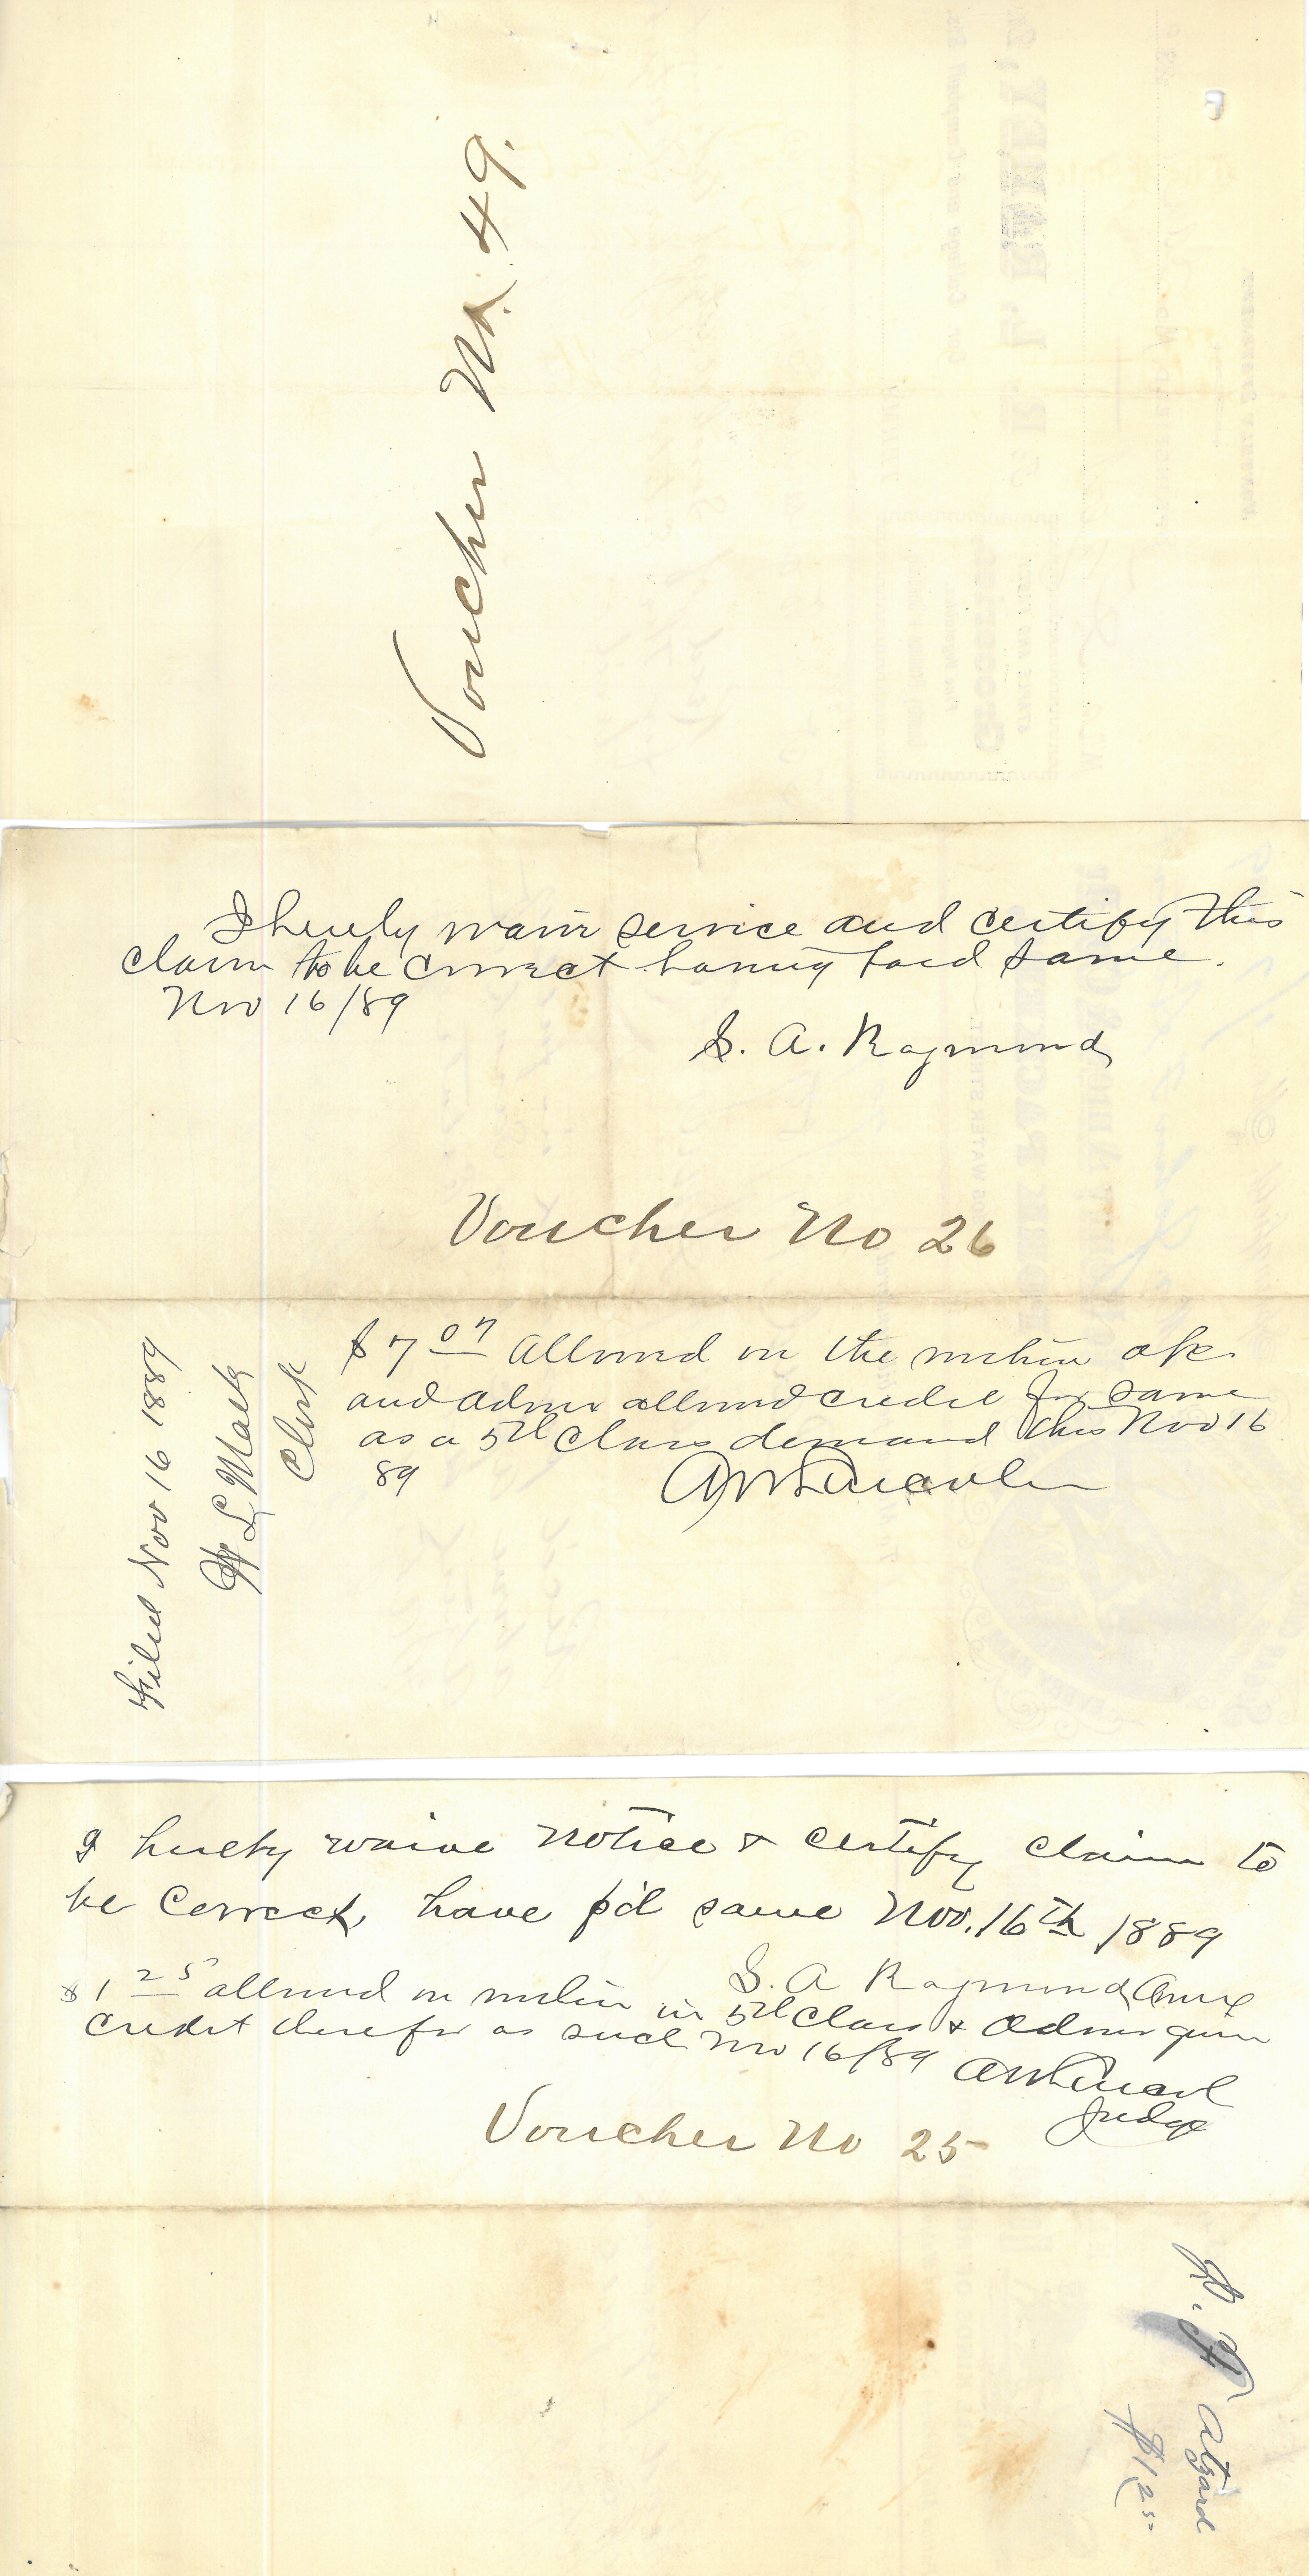 Voucher No. 49.
I hereby waive service and certify this
claim to be correct having paid same.
Nov 16/89
S. A. Raymond
Voucher No 26
$7 07 allowed on the within ofc
and admr allowed credit for same
as a 5th Class demand this Nov 16
89
Filed Nov 16 1889
Clerk
I hereby waive notice & certify claim to
be Correct, have p'd same Nov. 16th 1889
S. A Raymond
$1 25 allowed on within in 5th Class & Admr given
credit therefor as such Nov 16/89
Judge
Voucher No 25
Atzard
$1 25